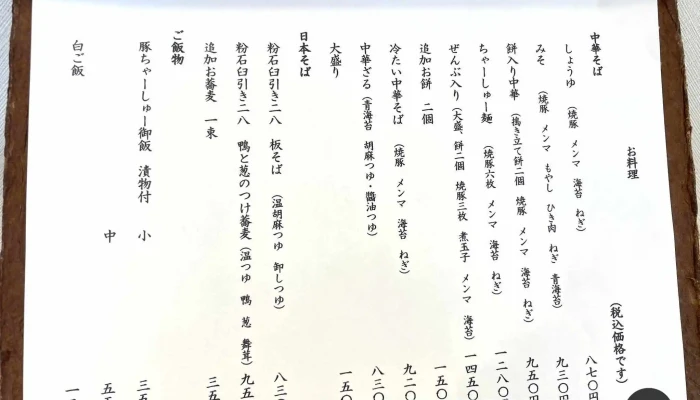 お料理
(税込価格です)
中華そば
しょうゆ (焼豚 メンマ 海苔 ねぎ) 八七〇円
みそ (焼豚 メンマ もやし ひき肉 ねぎ 青海苔) 九三〇円
餅入り中華 (搗き立て餅二個 焼豚 メンマ 海苔 ねぎ) 九五〇円
ちゃーしゅー麺 (焼豚六枚 メンマ 海苔 ねぎ) 一二八〇円
ぜんぶ入り (大盛、餅二個 焼豚三枚 煮玉子 メンマ 海苔) 一四五〇
追加お餅 二個 一五〇
冷たい中華そば (焼豚 メンマ 海苔 ねぎ) 九二〇
中華ざる (青海苔 胡麻つゆ・醬油つゆ) 八三〇
大盛り 一五〇
日本そば
粉石臼引き二八 板そば (温胡麻つゆ 卸しつゆ) 八三
粉石臼引き二八 鴨と葱のつけ蕎麦 (温つゆ 鴨 葱 舞茸) 九五
追加お蕎麦 一束 三五
ご飯物
豚ちゃーしゅー御飯 漬物付 小 三五
中 五五
白ご飯 一